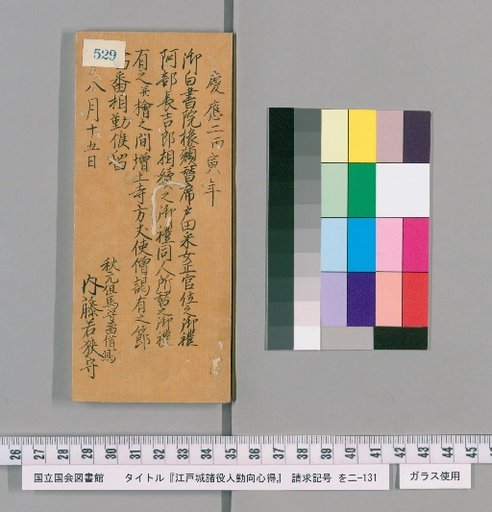 529
慶應二丙寅年
御白書院椽頬替席戸田采女正官位之御禮
阿部長吉郎相続之御禮同人所替之御禮
有之并檜之間増上寺方丈使僧謁有之節
當番相勤候留
八月十五日
秋元但馬守
内藤若狭守
26 27 28 29 30 31 32 33 34 35 36 37 38 39 40 41 42 43 44 45
国立国会図書館 タイトル『江戸城諸役人勤向心得』 請求記号 を二-131
ガラス使用